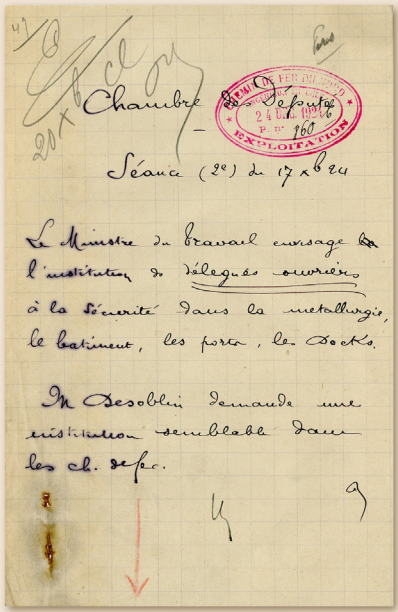 49
20 Xb
CHEMIN DE FER DU NORD
24 DEC. 1924
P. n° 960
EXPLOITATION
Chambre des Députés
Séance (2e) du 17 Xb 24
Le Ministre du Travail envisage
l'institution de délégués ouvriers
à la sécurité dans la metallurgie,
le batiment, les ports, les Docks.
M Desoblin demande une
institution semblable dans
les ch. de fer.